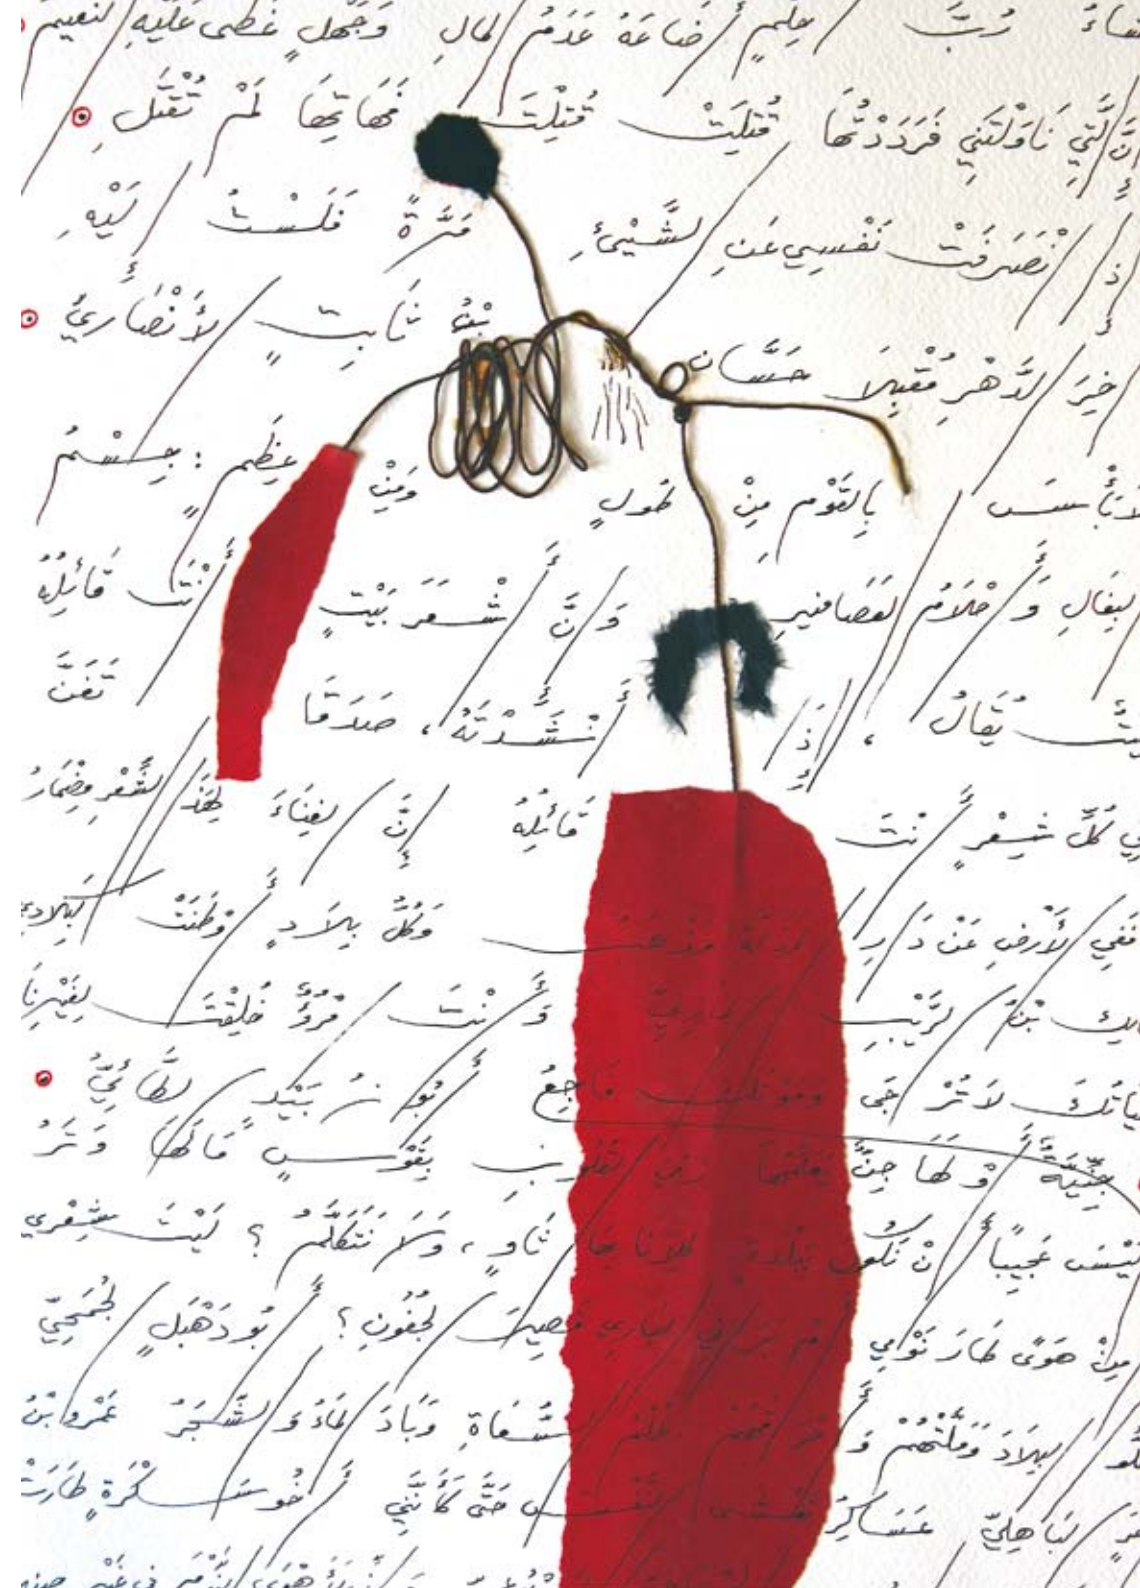 رُبَّ حِلمٍ أَضَاعَهُ عَدَمُ المالِ وَجَهْلٍ غَطَّى عَلَيْهِ النَّعيمُ
إنَّ الَّتِي نَاوَلْتَنِي فَرَدَدْتُهَا قُتِلَتْ قُتِلْتَ فَهَاتِهَا لَمْ تُقْتَلِ
إذا انْصَرَفَتْ نَفْسِي عَنِ الشَّيْئِ مَرَّةً فَلَسْتُ إلَيْهِ
آخِرَ الدَّهْرِ مُقْبِلَا حَسَّان بْنُ ثَابِتٍ الأَنْصَارِيُّ
لَا بَأْسَ بِالقَوْمِ مِنْ طُولٍ وَمِنْ عِظَمٍ : جِسْمُ
البِغَالِ وَأَحْلَامُ العَصَافِيرِ وَإنَّ أَشْعَرَ بَيْتٍ أَنْتَ قَائِلُهُ
بيتٌ يُقَالُ ، إذَا أَنْشَدْتَهُ ، صَدَقَا تَغَنَّ
فِي كُلِّ شِعْرٍ أنْتَ قَائِلُهُ إنَّ الغِنَاءَ لِهَذَا الشِّعْرِ مِضْمَارُ
فَفِي الأَرْضِ عَنْ دَارِ المذلة مَذْهَبٌ وَكُلُّ بِلَادٍ أَوْطَنَتْ كَبِلَادِي
مالك بْنُ الرَّيْبِ وَأَنْتَ امْرُؤٌ خُلِقْتَ لِغَيْرِنَا
حَيَاتُكَ لَا تُرْجَى وَمَوْتُكَ فَاجِعُ أَبُو زُبَيْدٍ الطَّائِيُّ
أَجِنِّيَّةٌ أَوْ لَهَا جِنٌّ يُعَلِّمُهَا رمي القُلُوبِ بِقَوْسٍ مَا لَهَا وَتَرُ
أَلَيْسَ عَجِيبًا أَنْ نَكُونَ بِبَلْدَةٍ كِلَانَا بِهَا ثَاوٍ ، وَلَا نَتَكَلَّمُ ؟ لَيْتَ شِعْرِي
أمِنْ هَوًى طَارَ نَوْمِي أم بَرَاني الباري قَصِيرَ الجُفُونِ ؟ أَبُو دَهْبَلٍ الجُمَحِيّ
البِلَادَ وَمَلَّتْهُمْ وَأحرقهم ظُلْمُ السُّعَاةِ وَبَادَ المَاءُ وَالشَّجَرُ عَمْرو بْنُ
أحمَرٍ البَاهِلِيّ عَسَاكِرُ تَغْشَى النَّفْسَ حَتَّى كَأَنَّنِي أَخُو سَكْرَةٍ طَارَتْ